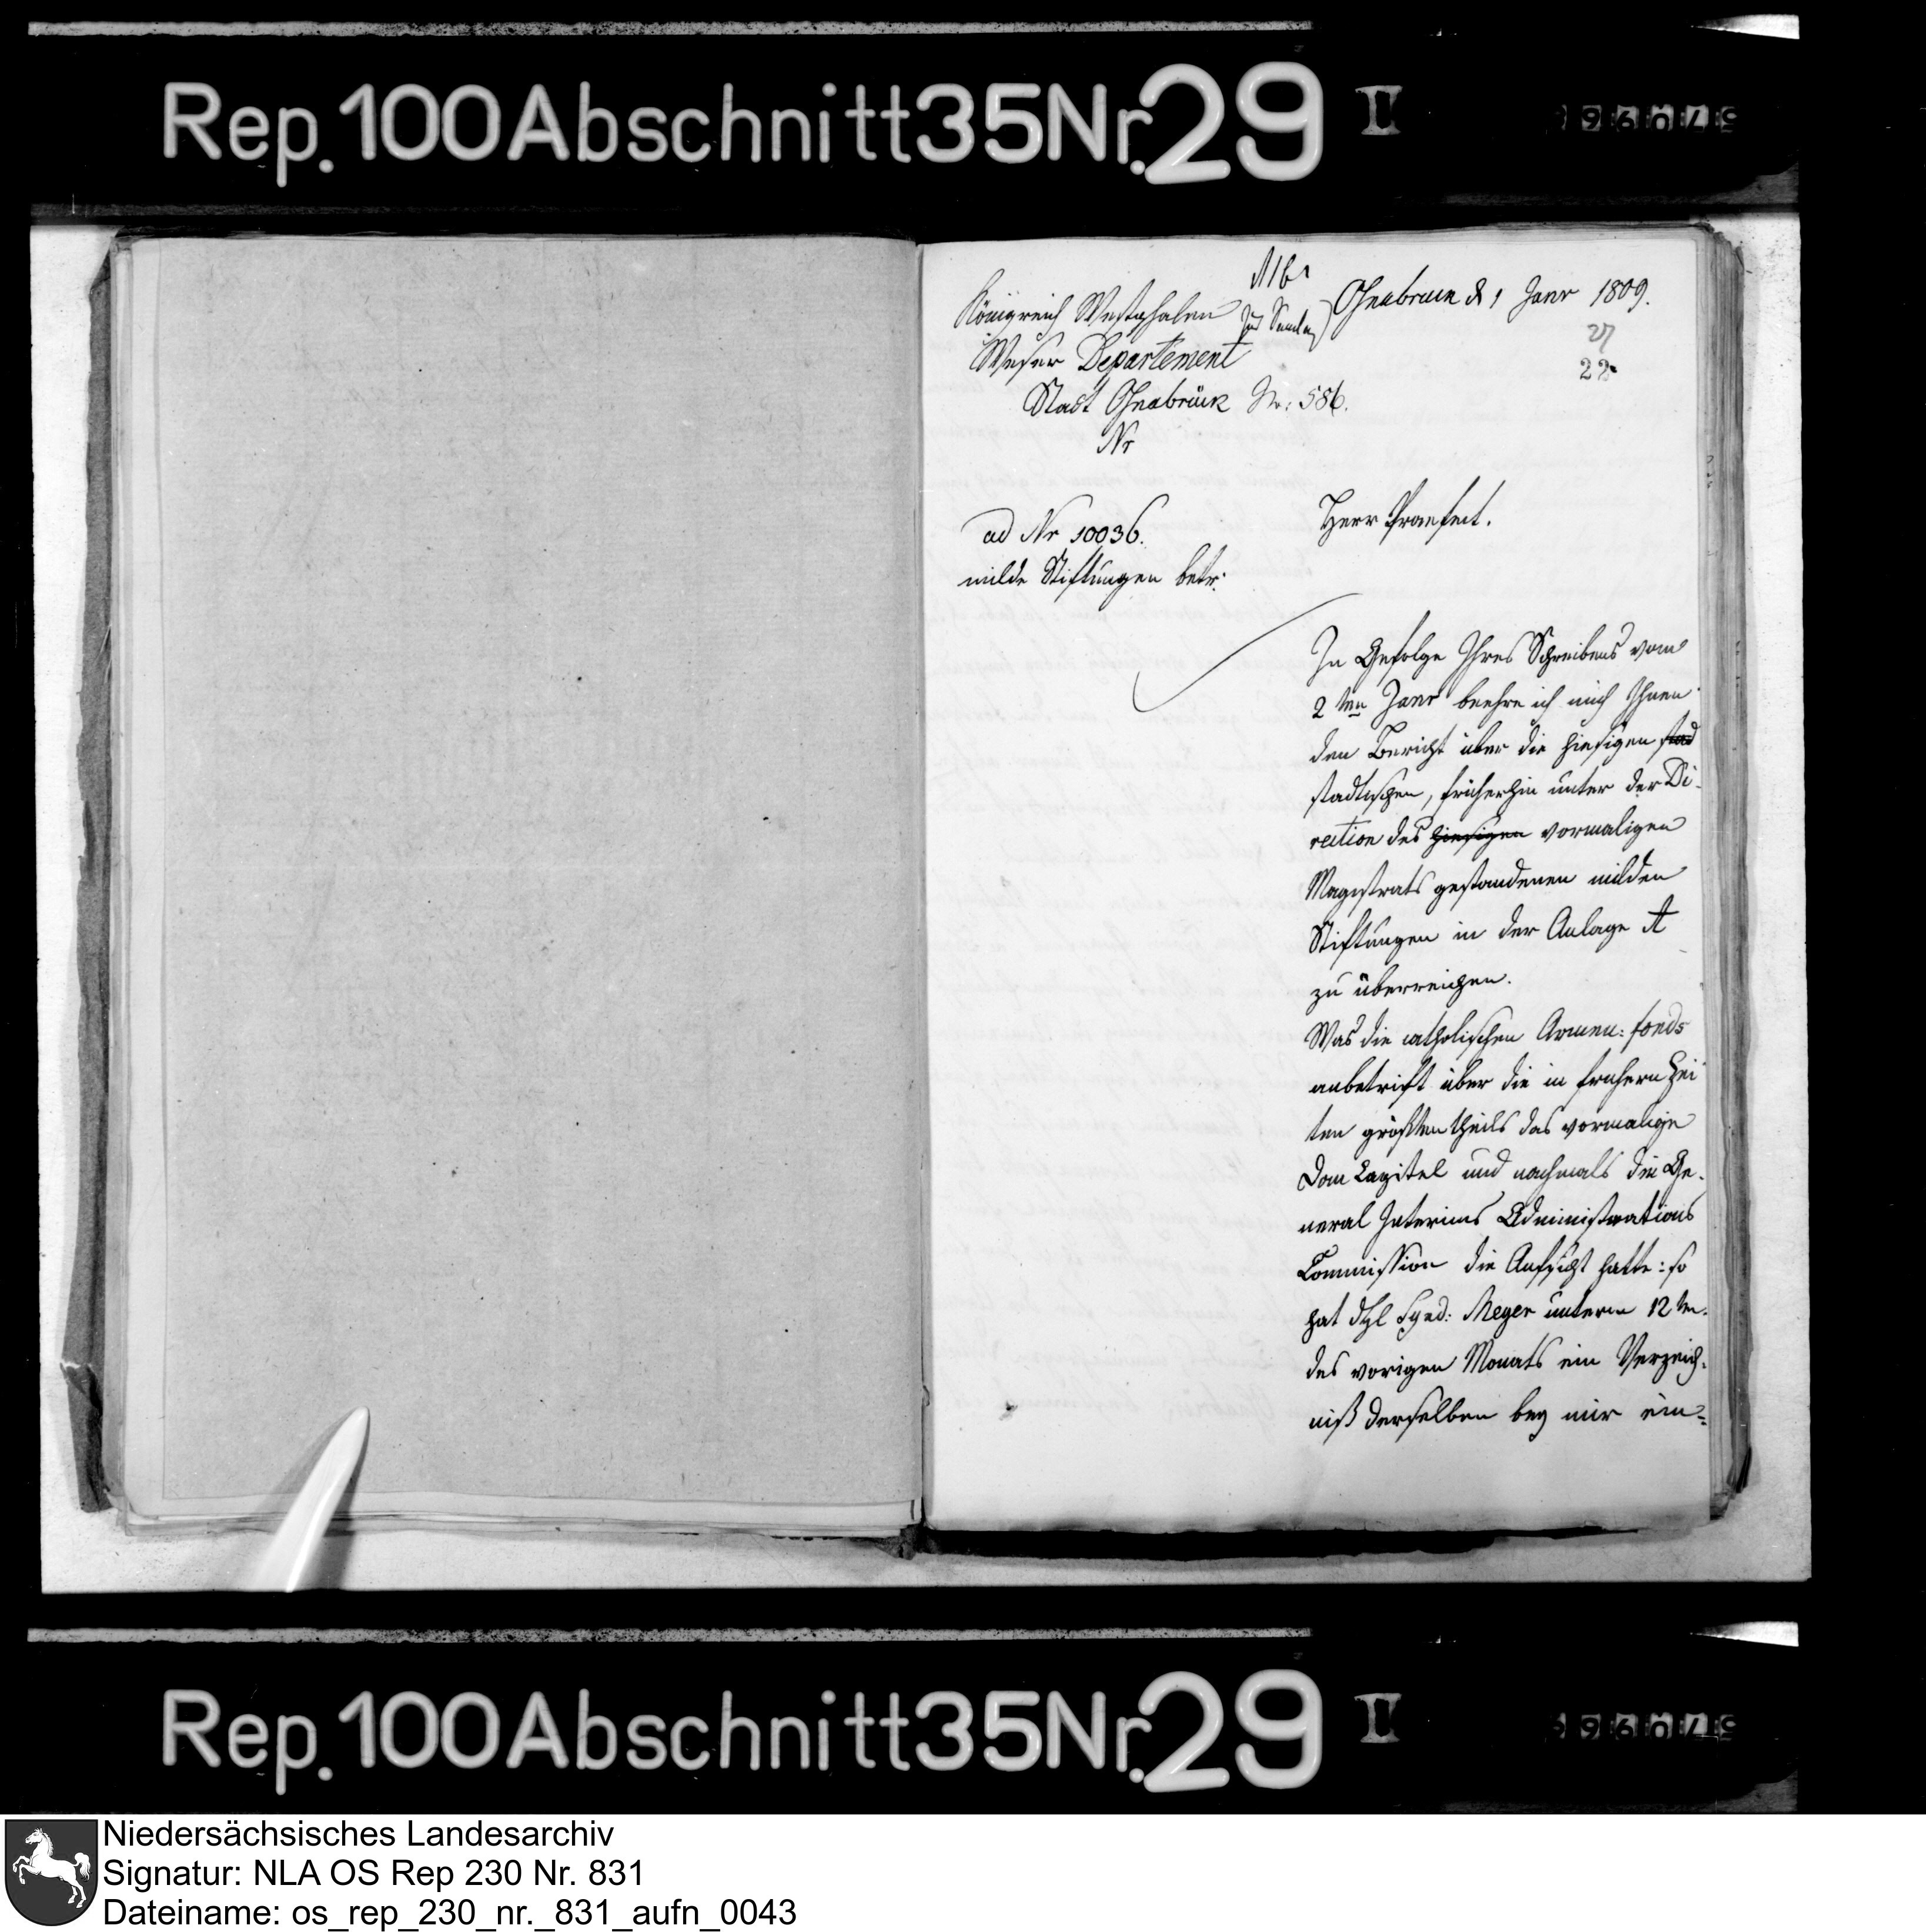 Rep. 100 Abschnitt 35 Nr. 29 I
Königreich Westphalen
Osnabrück d 1 Janr 1809.
Weser Departement
22
Stadt Osnabrück Nr: 586.
Nr
ad Nr 10036.
milde Stiftungen betr:
Herr Praefect.
In Gefolge Ihres Schreibens vom
2 ten Janr beehre ich mich Ihnen
den Bericht über die hiesigen stad
stadtischen, früherhin unter der Di-
rection des hiesigen vormaligen
Magistrats gestandenen milden
Stiftungen in der Anlage A
zu überreichen.
Was die catholischen Armen: fonds
anbetrift über die in frühern Zei
ten größten theils das vormalige
Dom Capitel und nachmals die Ge-
neral Interims Administrations
Commission die Aufsicht hatte: so
hat Synd: Meyer unterm 12 ten
des vorigen Monats ein Verzeich-
niß derselben bey mir ein-
Rep. 100 Abschnitt 35 Nr. 29 I
Niedersächsisches Landesarchiv
Signatur: NLA OS Rep 230 Nr. 831
Dateiname: os_rep_230_nr._831_aufn_0043